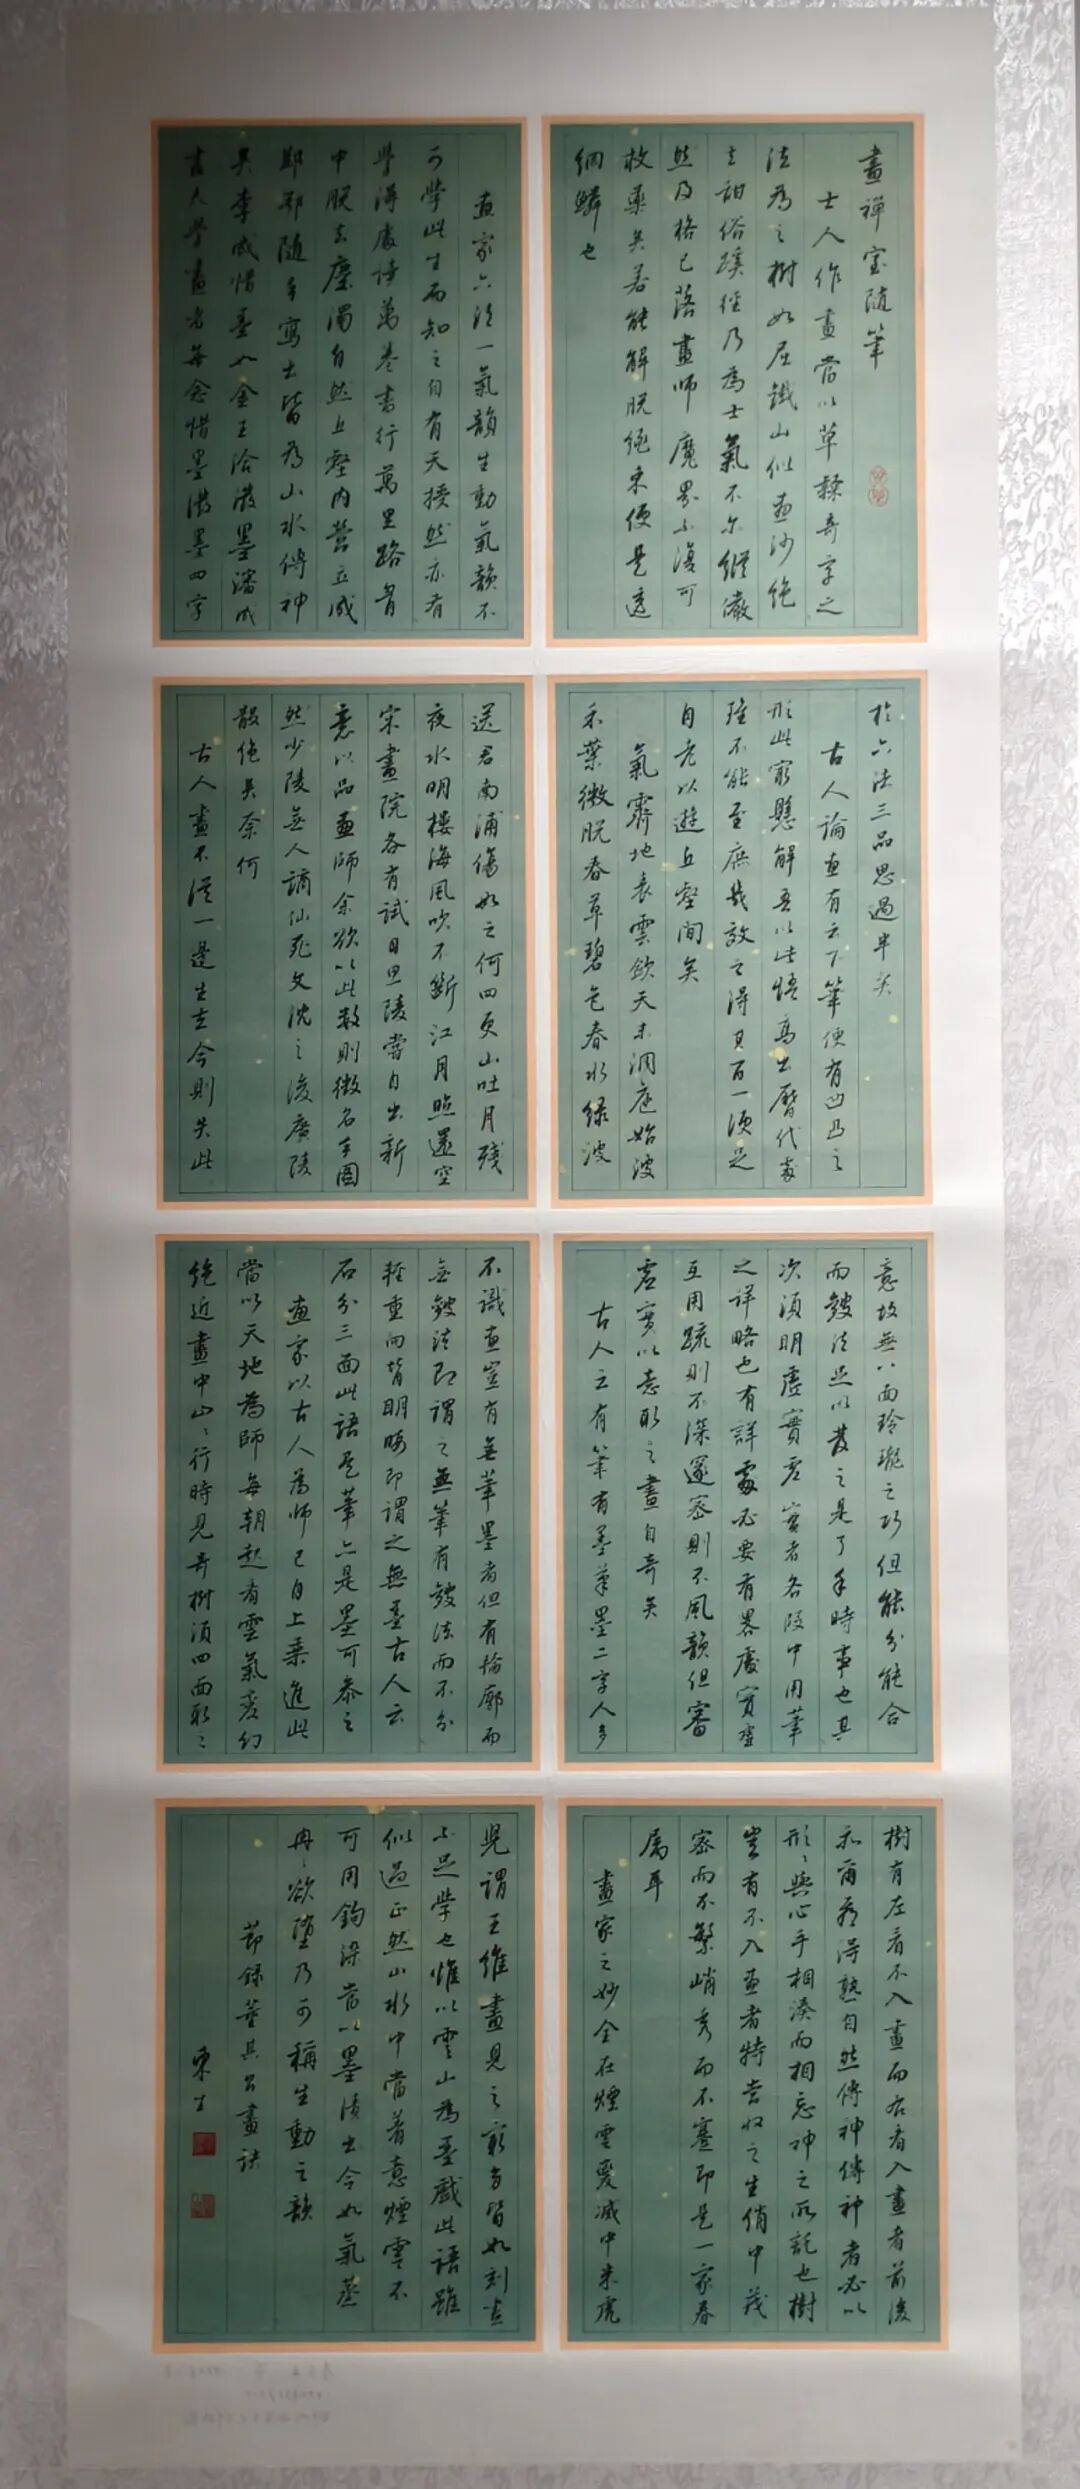 畫禪室隨筆
士人作畫當以草隸奇字之
法為之樹如屈鐵山似畫沙絕
去甜俗蹊徑乃為士氣不尔縱儼
然及格已落畫師魔界不復可
救藥矣若能解脫繩束便是透
網鱗也
畫家六法一氣韻生動氣韻不
可學此生而知之自有天授然亦有
學得處讀萬卷書行萬里路胷
中脫去塵濁自然丘壑內營立成
鄞鄂隨手寫出皆為山水傳神
矣李成惜墨如金王洽潑墨瀋成
畫人學畫者每念惜墨潑墨四字
於六法三品思過半矣
古人論畫有云下筆便有凹凸之
形此最懸解吾以此悟高出歷代處
雖不能至庶幾效之得其百一便足
自老以遊丘壑間矣
氣霽地表雲斂天末洞庭始波
木葉微脫春草碧色春水綠波
送君南浦傷如之何四更山吐月殘
夜水明樓海風吹不斷江月照還空
宋畫院各有試目思陵嘗自出新
意以品畫師余欲以此數則徵名手圖
然少陵無人謫仙死文沈之後廣陵
散絕矣奈何
古人畫不從一邊生去今則失此
意故無八面玲瓏之巧但能分能合
而皴法足以發之是了手時事也其
次須明虛實虛實者各段中用筆
之詳略也有詳處必要有畧處實虛
互用疏則不深邃密則不風韻但審
虛實以意取之畫自奇矣
古人云有筆有墨筆墨二字人多
不識畫豈有無筆墨者但有輪廓而
無皴法即謂之無筆有皴法而不分
輕重向背明晦即謂之無墨古人云
石分三面此語是筆亦是墨可參之
畫家以古人為師已自上乘進此
當以天地為師每朝起看雲氣變幻
絕近畫中山山行時見奇樹須四面取之
樹有左看不入畫而右看入畫者前後
亦爾看得熟自然傳神傳神者必以
形形與心手相湊而相忘神之所託也樹
豈有不入畫者特當收之生綃中茂
密而不繁峭秀而不蹇即是一家眷
屬耳
畫家之妙全在煙雲變滅中米虎
兒謂王維畫見之最多皆如刻畫
不足學也惟以雲山為墨戲此語雖
似過正然山水中當着意煙雲不
可用鉤染當以墨漬出令如氣蒸
冉冉欲墮乃可稱生動之韻
節錄董其昌畫訣
東士